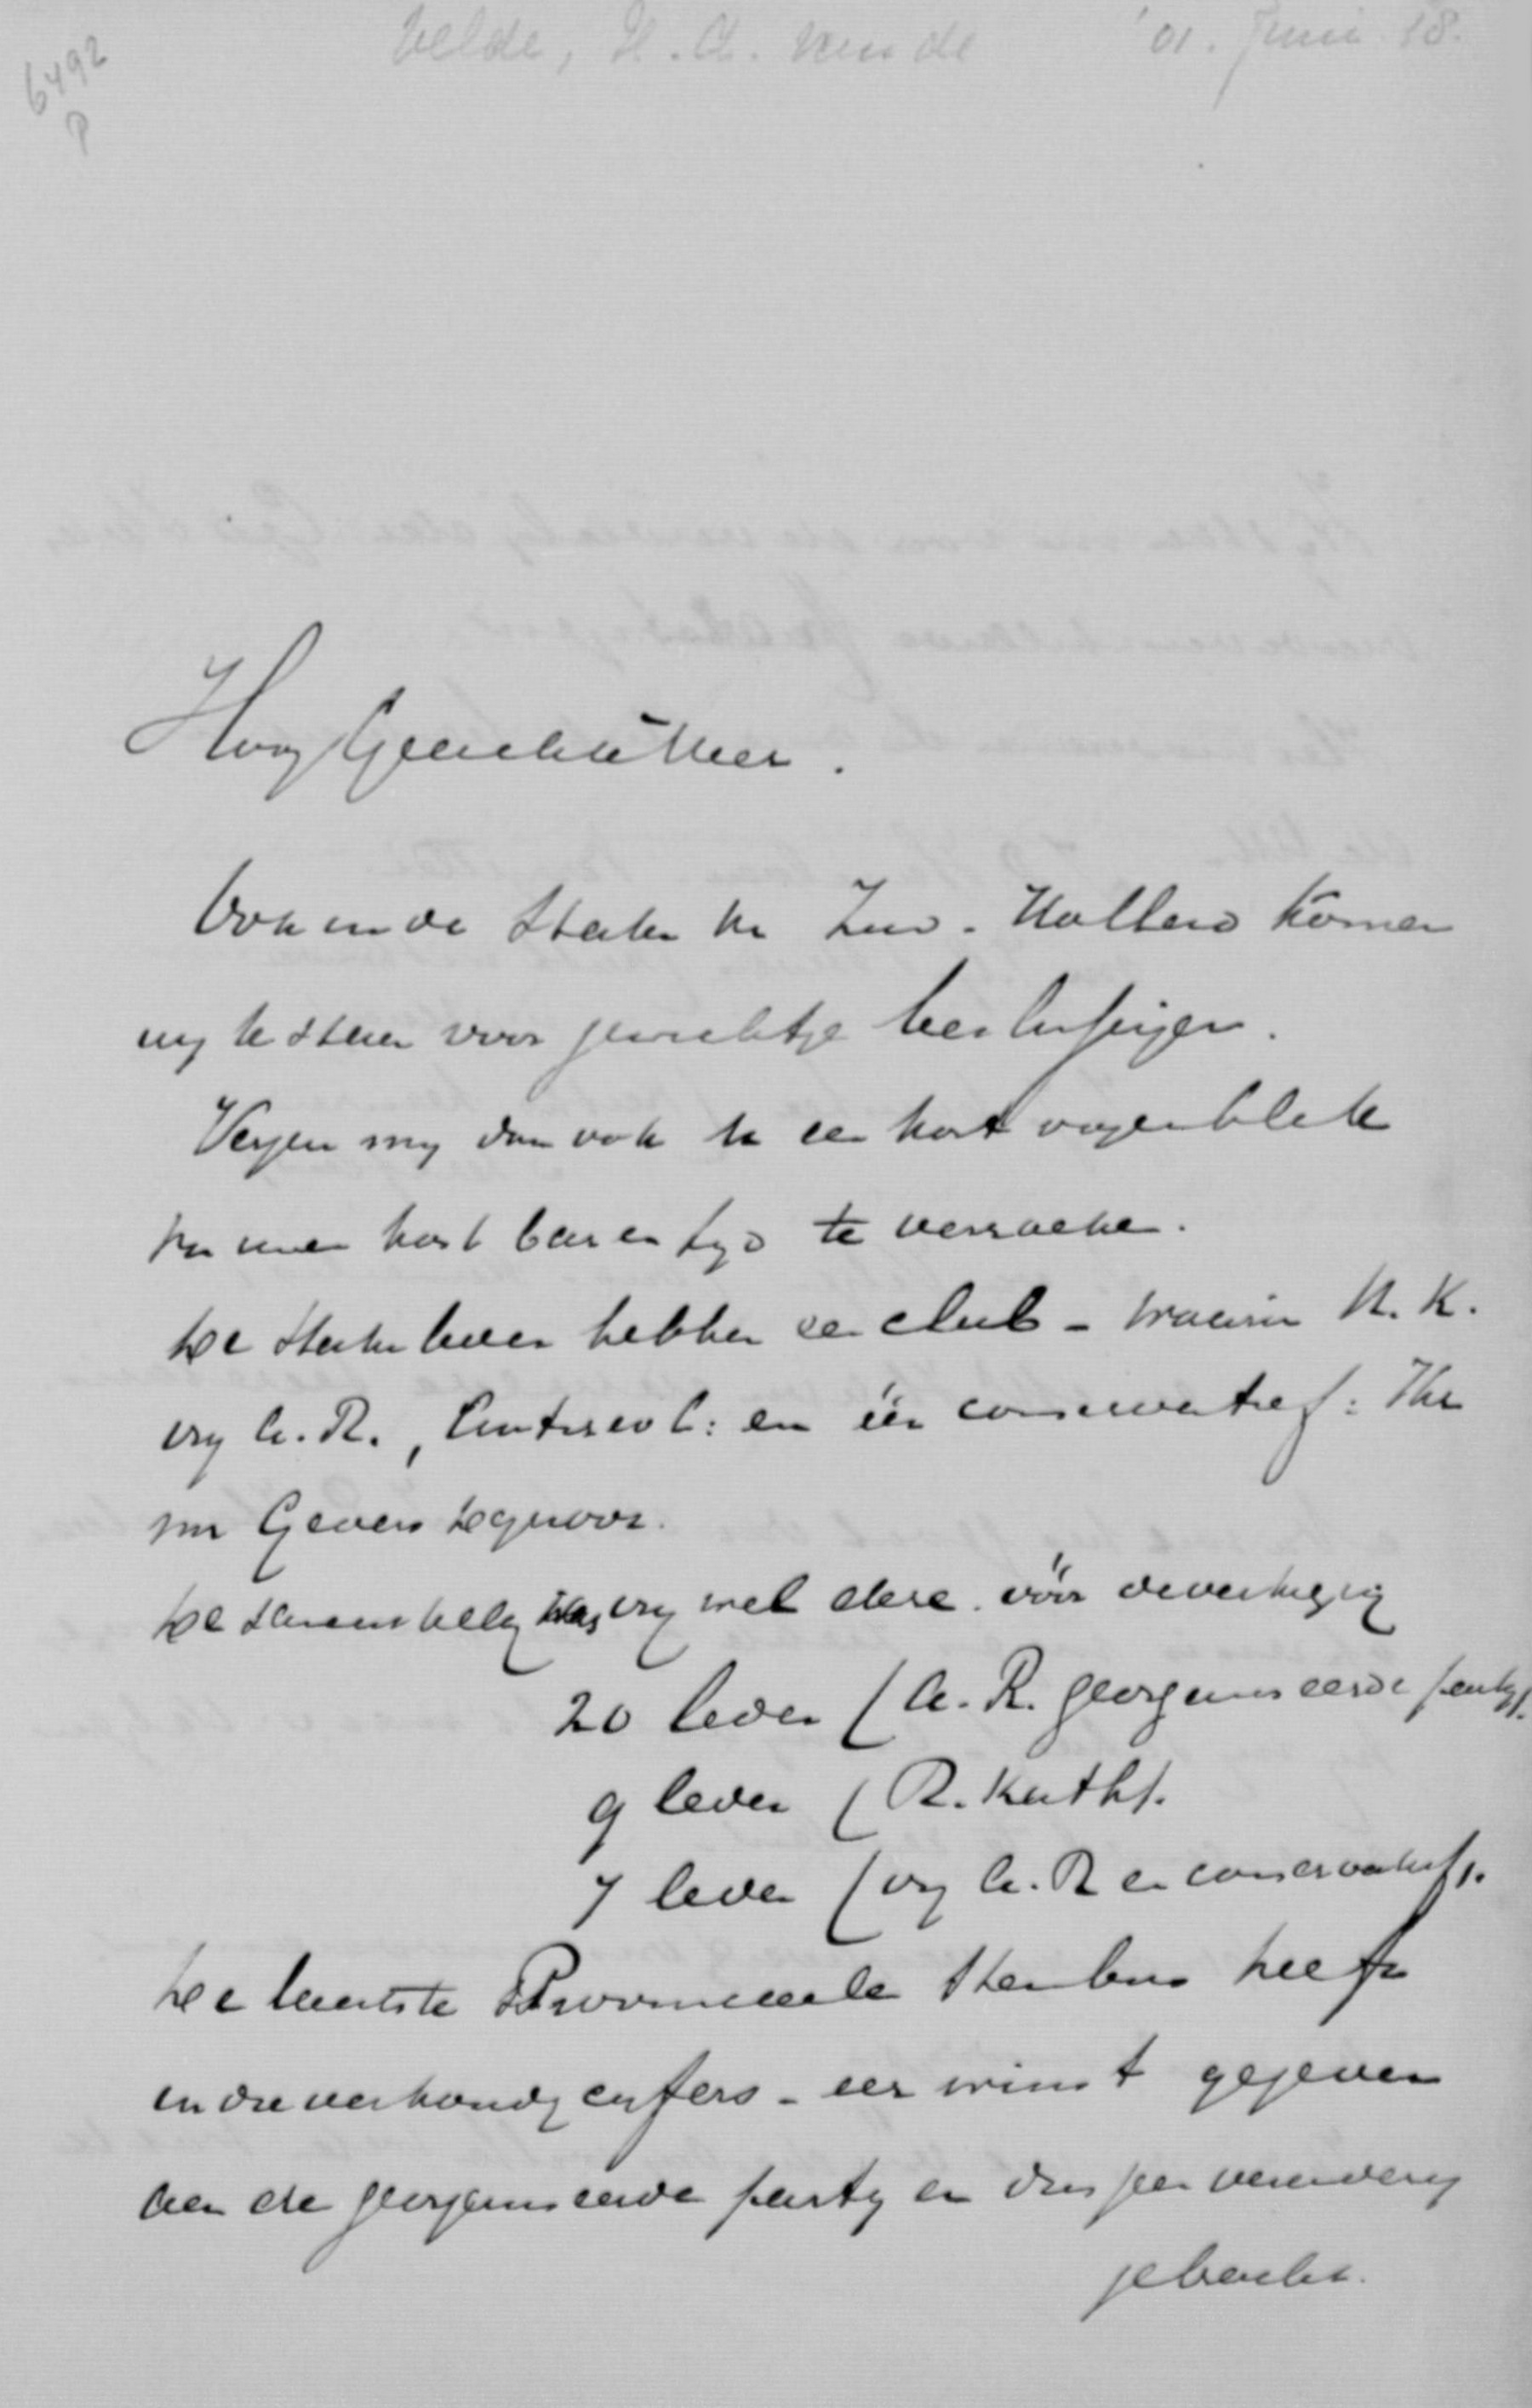 6492
P
Velde, H. A. van de '01. Juni 18.
Hoog Geachte Heer.
Ook in de Staten van Zuid-Holland komen
wy te staan voor gewichtige beslissingen.
Vergun my dan ook U een kort oogenblik
van uwen kostbaren tyd te verzoeken.
De Statenleden hebben een club - waarin R. K.
vry A. R., Antirevol: en één conservatief: Jhr
mr Gevers Deynoot.
De samenstelling was vry wel deze vóór de verkiezing
20 leden (A. R. georganiseerde party).
9 leden (R. Kath).
7 leden (vry A. R en conservatief).
De laatste Provinciale Stembus heeft
in de verhoudg cyfers - een winst gegeven
aan de georganiseerde party en dus geen verandering
gebracht.